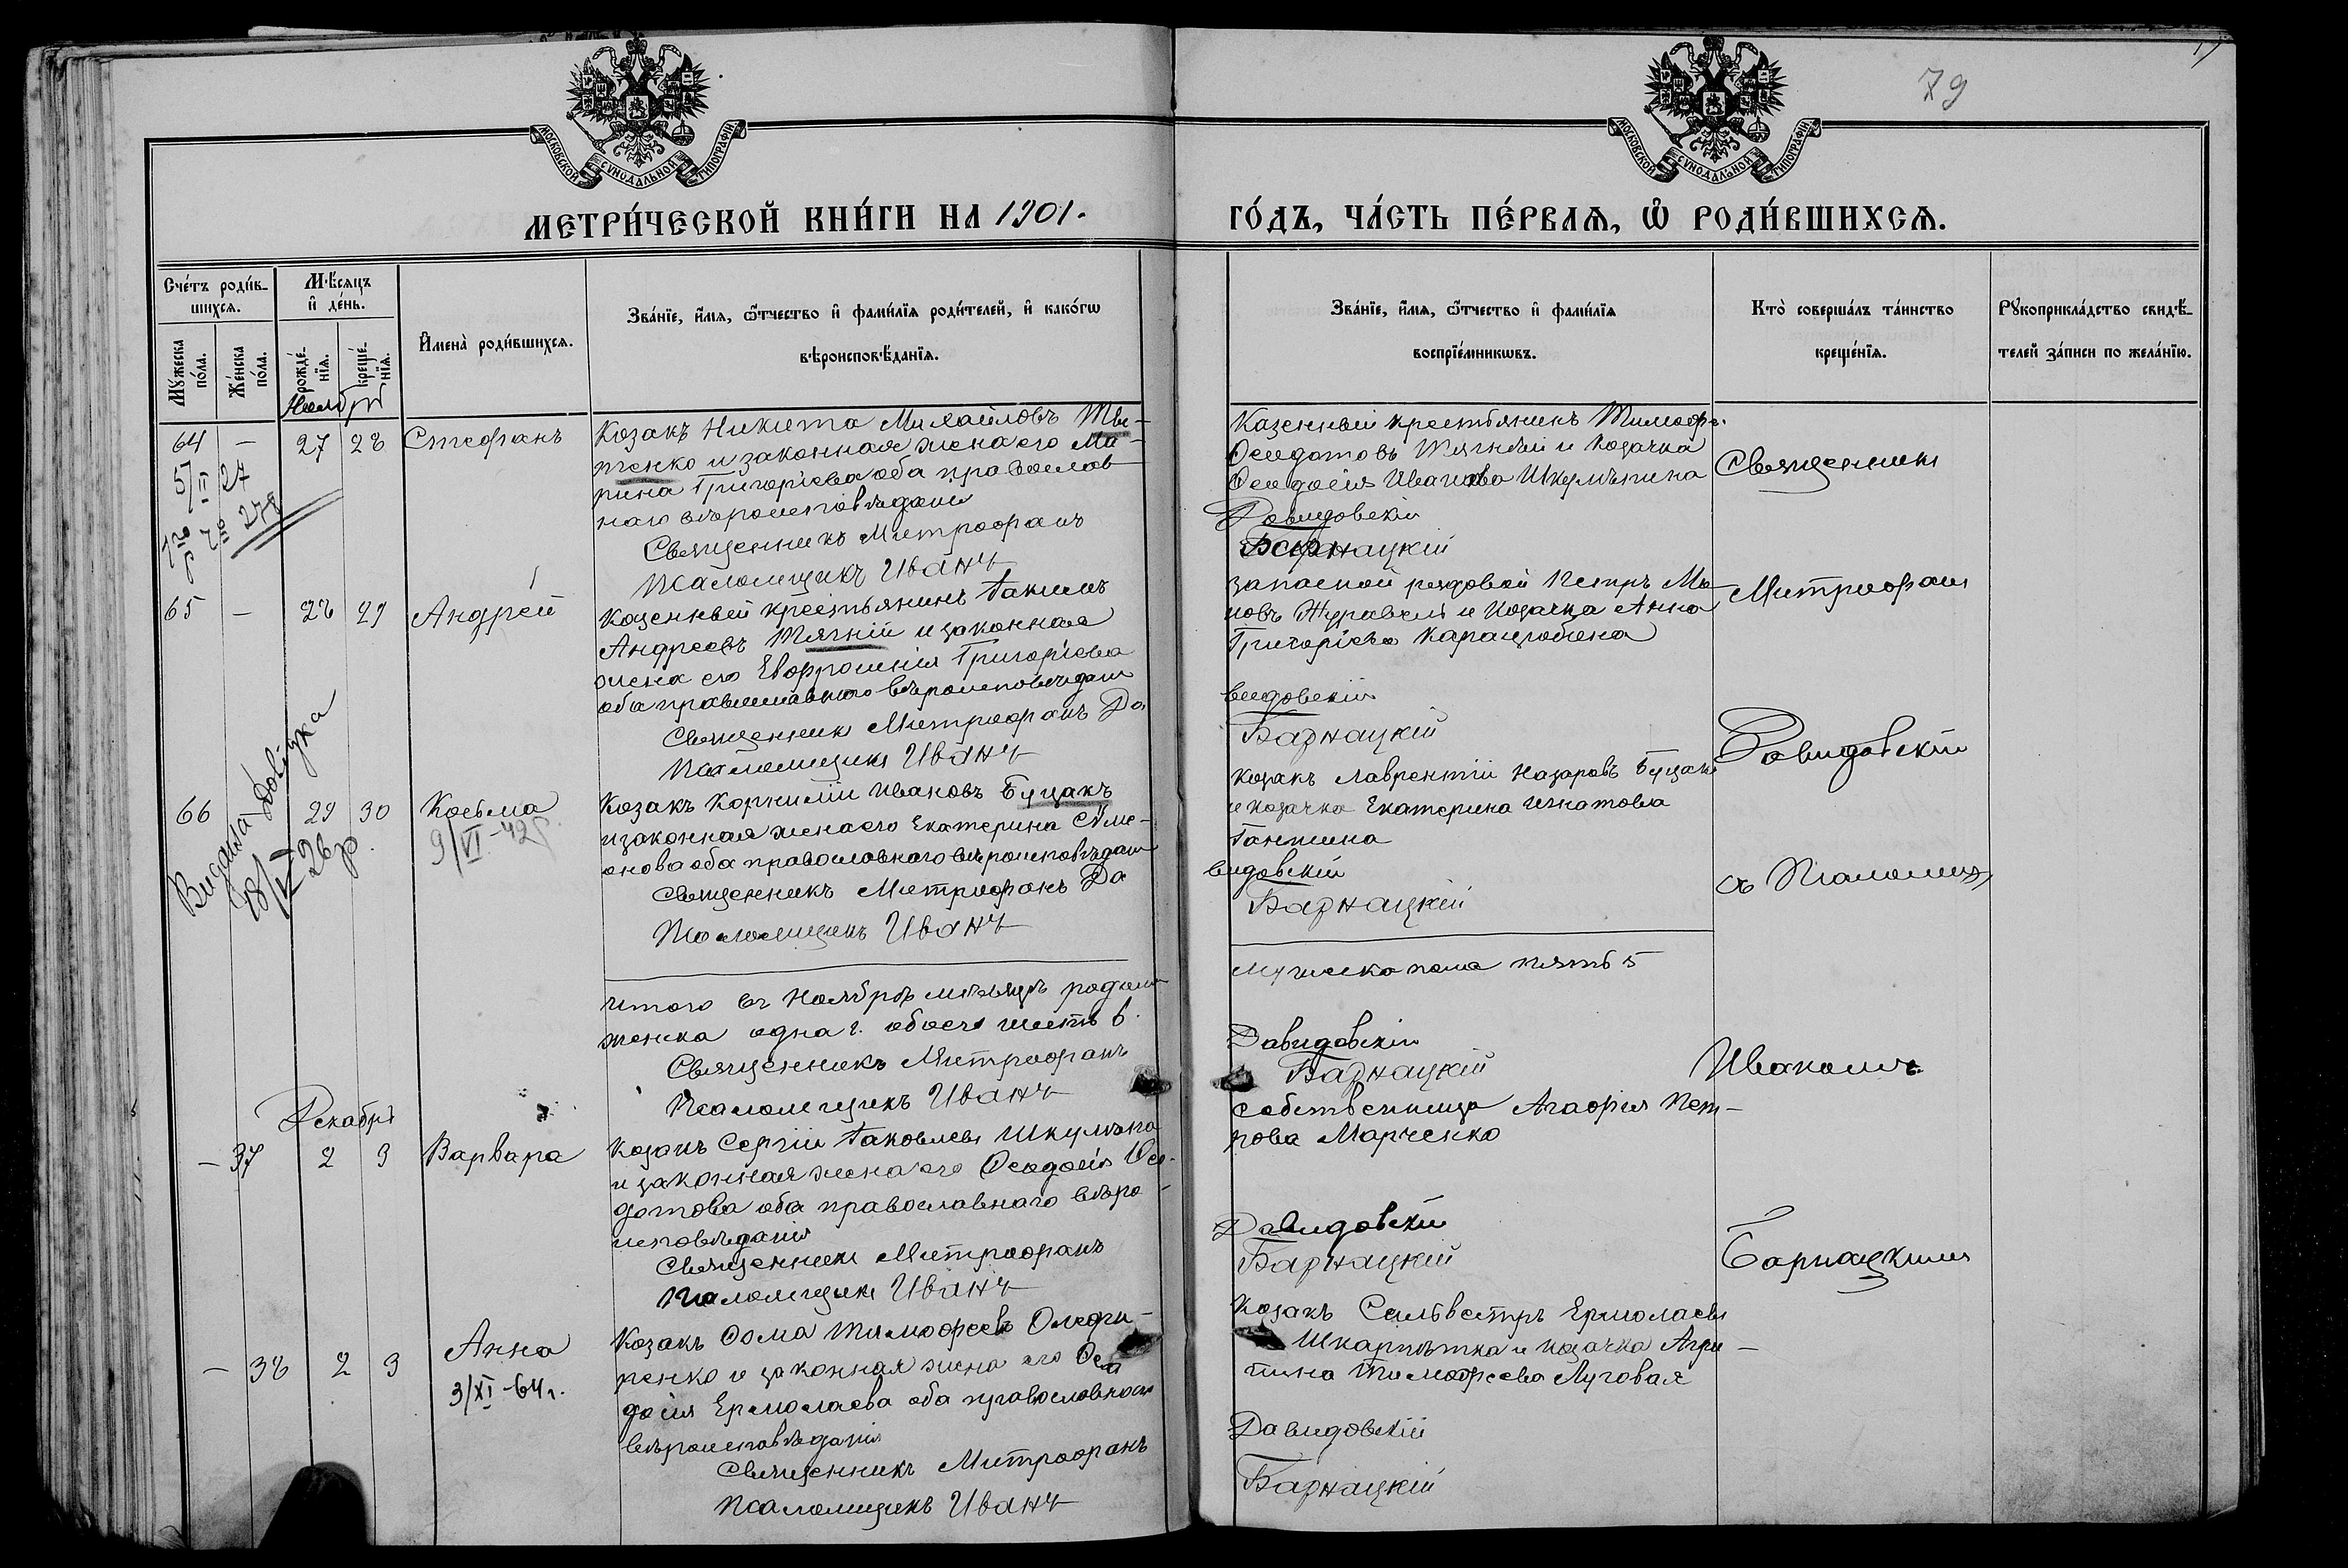 79
МОСКОВСКОЙ СУНОДАЛЬНОЙ ТИПОГРАФІИ
МОСКОВСКОЙ СУНОДАЛЬНОЙ ТИПОГРАФІИ
МЕТРИ́ЧЕСКОЙ КНИ́ГИ НА 1901.
ГО́ДЪ, ЧА́СТЬ ПЕ́РВАѦ, Ѽ РОДИ́ВШИХСѦ.
Сче́тъ роди́в-
шихся.
Мꙋ́жеска по́ла.
Же́нска по́ла.
Мѣ́сяцъ
и҆ де́нь.
рожде́-
нїя.
креще́-
нїя.
И҆мена̀ роди́вшихся.
Зва́нїе, и҆́мя, ѻ҆́тчество и҆ фами́лїя роди́телей, и҆ како́гѡ
вѣроисповѣ́данїя.
Зва́нїе, и҆́мя, ѻ҆́тчество и҆ фами́лїя
воспрїе́мникѡвъ.
Кто̀ соверша́лъ та́инство
креще́нїя.
Рꙋкоприкла́дство свидѣ́-
телей за́писи по жела́нїю.
Ноябрь
64 — 27 28 Стефанъ
5/II 27
Козакъ Никита Михайловъ Тви-
тенко и законная жена его Ма-
рина Григорiева оба православ
наго вѣроисповѣданiя
Священникъ Митрофанъ
Псаломщикъ Иванъ
Казенный крестьянинъ Тимофей
Феодотовъ Тягнiй и козачка
Феодосiя Иванова Шкумѣтина
Давидовскiй
Барнацкiй
Священникъ
65 — 28 29 Андрей
Казенный крестьянинъ Iакимъ
Андреевъ Тягнiй и законная
жена его Евфросинiя Григорiева
оба православнаго вѣроисповѣданiя
Священникъ Митрофанъ Да
Псаломщикъ Иванъ
Запасной рядовой Петръ
новъ Журавель и козачка Анна
Григорiева
видовскiй
Барнацкiй
Митрофанъ
Давидовскiй
66 29 30 Косьма
9/VI-42р.
Видана довiдка
18/V 26р.
Козакъ Корнилiй Ивановъ Буцакъ
и законная жена его Екатерина Симе-
онова оба православнаго вѣроисповѣданiя
Священникъ Митрофанъ Да
Псаломщикъ Иванъ
Козакъ Лаврентiй Назаровъ Буцакъ
и козачка Екатерина Игнатова
видовскiй
Барнацкiй
съ Псаломщи
Итого въ Ноябрѣ мѣсяцѣ родил
женска одна 1. обоего шесть 6.
Священникъ Митрофанъ
Псаломщикъ Иванъ
мужеска пола пять 5
Давидовскiй
Барнацкiй
Иваномъ
Декабрь
— 37 2 3 Варвара
Козакъ Сергiй Iаковлевъ Шкумѣта
и законная жена его Феодосiя Фео-
дотова оба православнаго вѣро-
исповѣданiя
Священникъ Митрофанъ
Псаломщикъ Иванъ
собственница Агафiя Пет-
рова Марченко
Давидовскiй
Барнацкiй
Барнацкимъ
— 38 2 3 Анна
3/XI-64г.
Козакъ Фома Тимофеевъ Олефи-
ренко и законная жена его Фео
досiя Ермолаева оба православнаго
вѣроисповѣданiя
Священникъ Митрофанъ
Псаломщикъ Иванъ
Козакъ Сильвестръ Ермолаевъ
Шкарпѣтка и козачка Агри-
пина Тимофеева Луговая
Давидовскiй
Барнацкiй